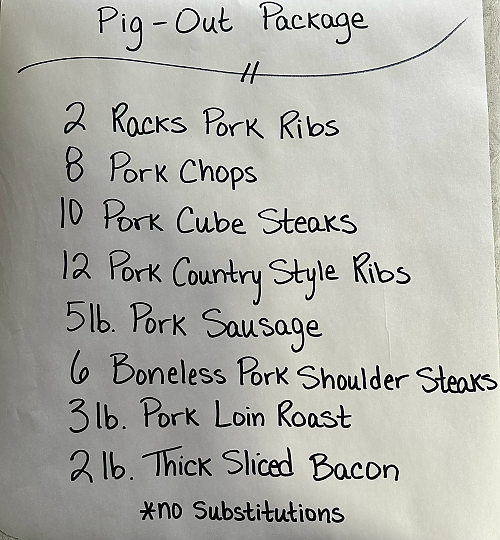 Pig-Out Package
2 Racks Pork Ribs
8 Pork Chops
10 Pork Cube Steaks
12 Pork Country Style Ribs
5lb. Pork Sausage
6 Boneless Pork Shoulder Steaks
3lb. Pork Loin Roast
2lb. Thick Sliced Bacon
*no Substitutions